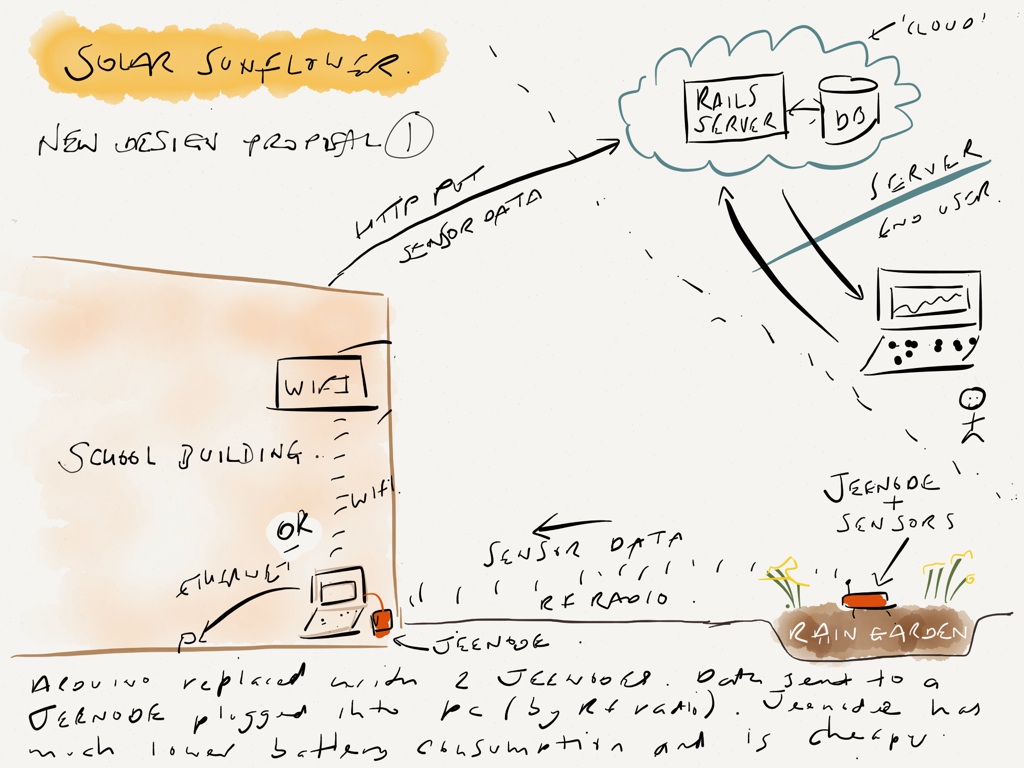 SOLAR SUNFLOWER.
NEW DESIGN PROPOSAL 1
'CLOUD'
RAILS
SERVER
DB
HTTP PUT
SENSOR DATA
SERVER
END USER.
WIFI
SCHOOL BUILDING.
WIFI.
OR
ETHERNET
JEENODE
+
SENSORS
SENSOR DATA
RF RADIO.
RAIN GARDEN
JEENODE
ARDUINO replaced with 2 JEENODES. Data sent to a
JEENODE plugged into pc (by RF radio). Jeenode has
much lower battery consumption and is cheap